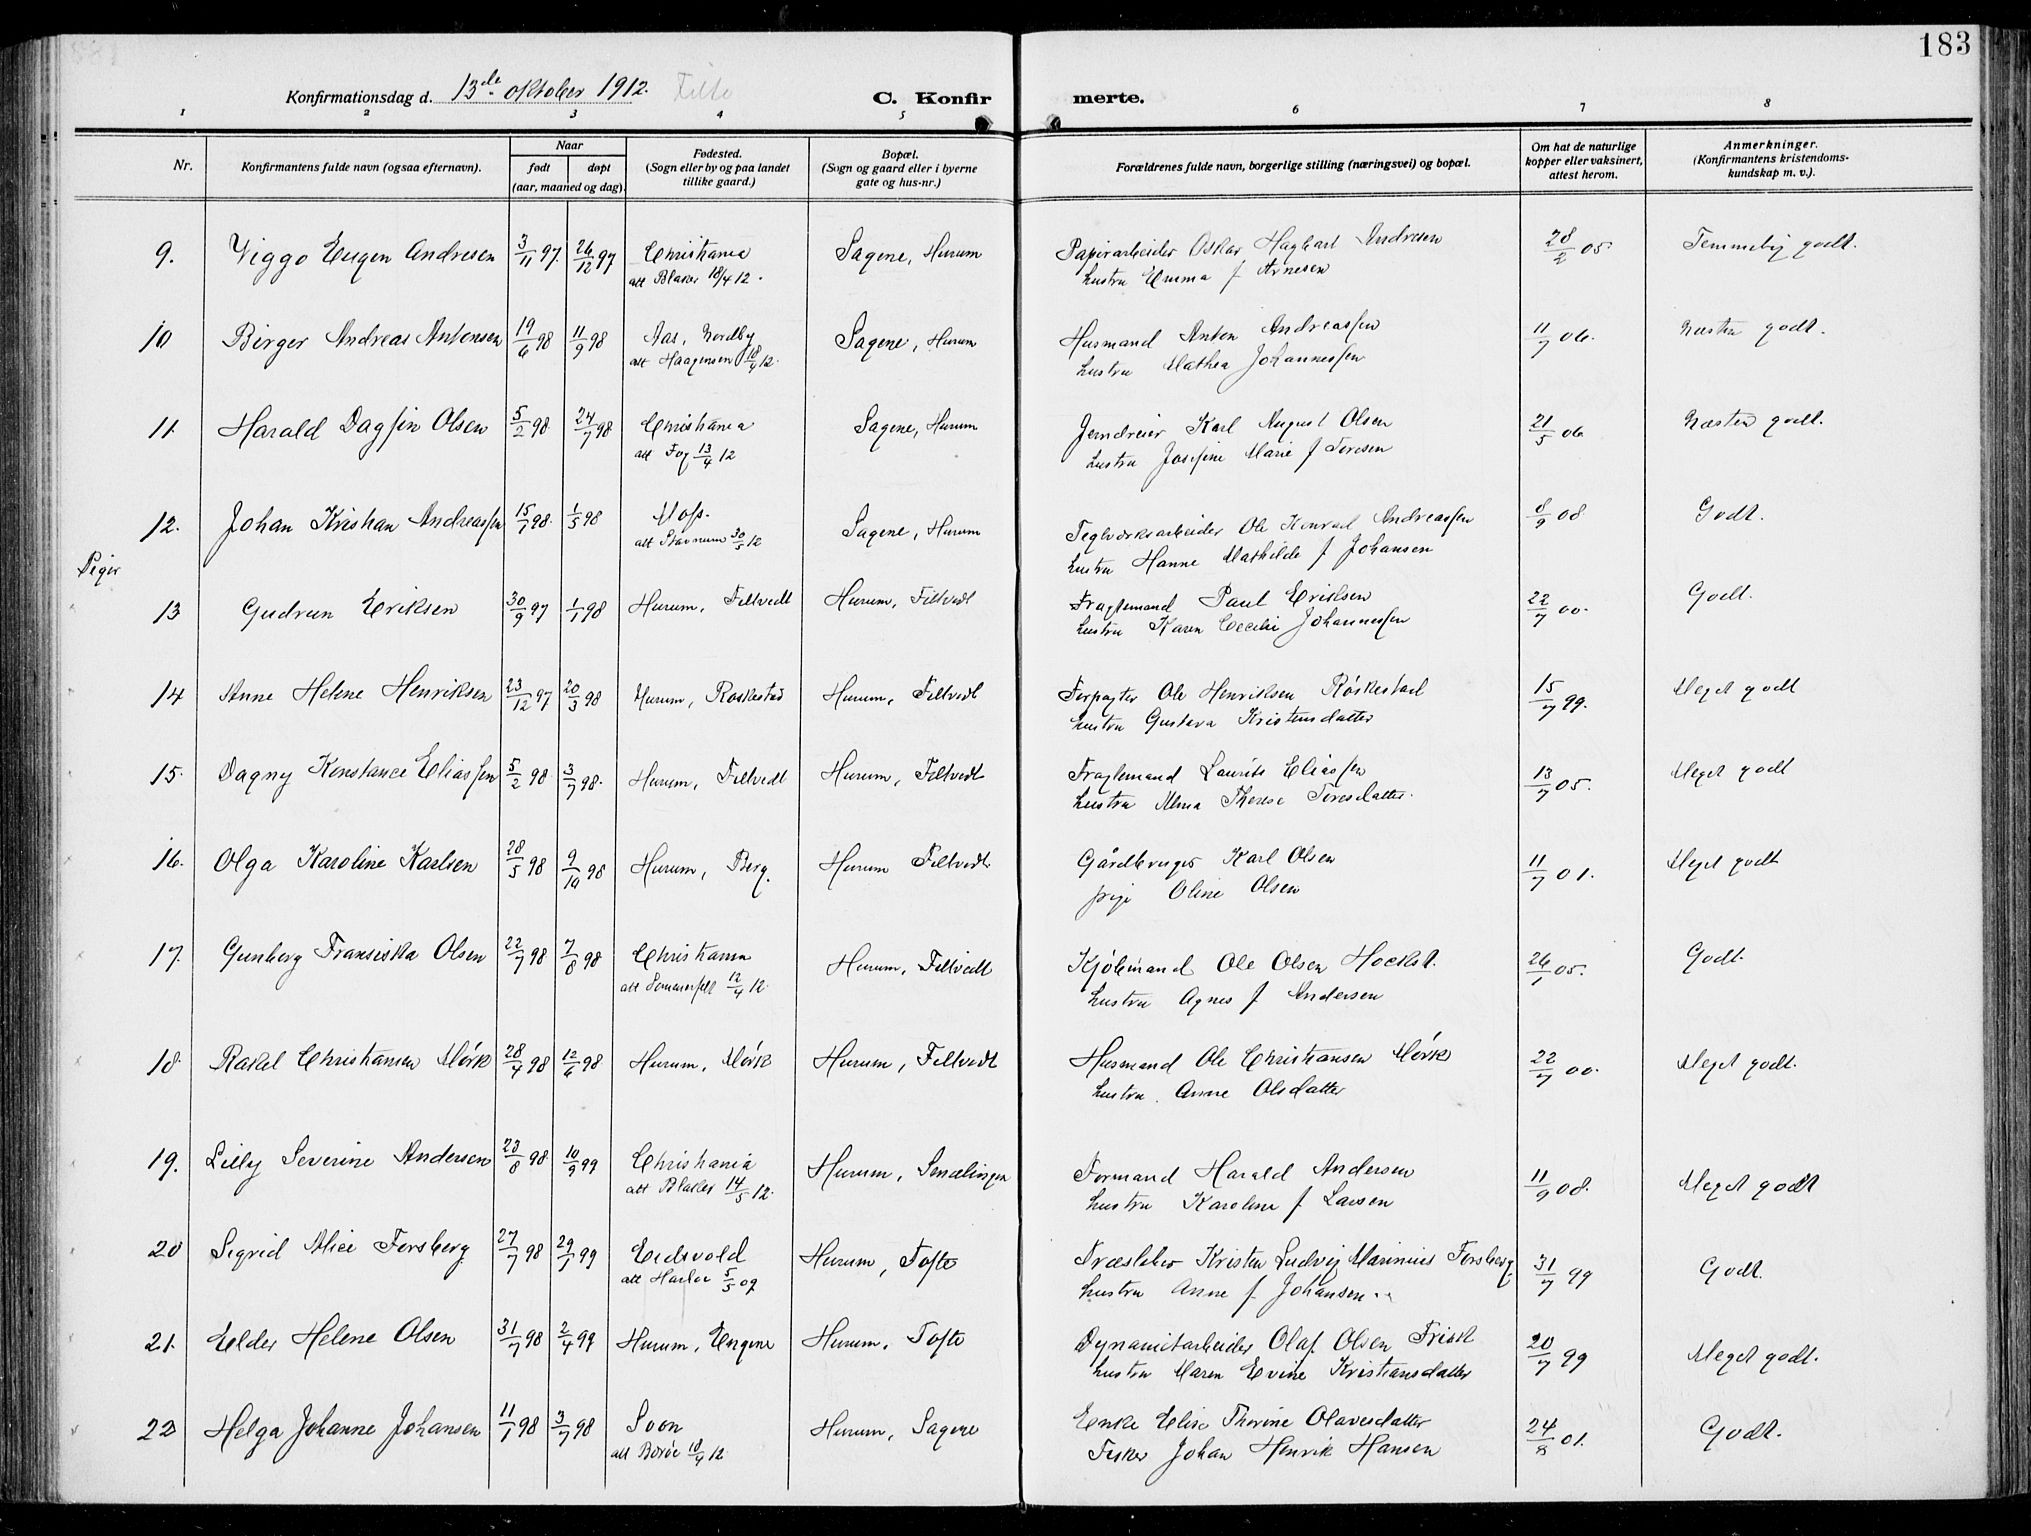 183
Konfirmationsdag d. 13de oktober 1912.
C. Konfirmerte.
1 2 3 4 5 6 7 8
Nr.
Konfirmantens fulde navn (ogsaa efternavn).
Naar
født døpt
(aar, maaned og dag).
Fødested.
(Sogn eller by og paa landet
tillike gaard.)
Bopæl.
(Sogn og gaard eller i byerne
gate og hus-nr.)
Forældrenes fulde navn, borgerlige stilling (næringsvei) og bopæl.
Om hat de naturlige
kopper eller vaksinert,
attest herom.
Anmerkninger.
(Konfirmantens kristendoms-
kundskap m. v.).
9. Viggo Eugen Andresen 3/11 97. 26/12 97 Christiania Sagene, Hurum Papirarbeider Oskar Hagbart Andresen 28/2 05. Temmelig godt.
att Blakar 18/4 12. hustru Emma f Arnesen
10 Birger Andreas Antonsen 19/6 98 11/9 98 Aas, Nordby Sagene, Hurum Husmand Anton Andreassen 11/7 06. Næsten godt.
att Haagensen 18/4 12. hustru Mathea Johannessen
11. Harald Dagfin Olsen 5/2 98 24/7 98 Christiania Sagene, Hurum Jerndreier Karl August Olsen 21/5 06 Næsten godt.
att Fog 13/4 12 hustru Josefine Marie f Toresen
12. Johan Kristian Andreassen 15/1 98. 1/5 98 Moss. Sagene, Hurum Teglverksarbeider Ole Konrad Andreassen 8/9 08 Godt.
att Stavnum 30/5 12 hustru Hanne Mathilde f Johansen
Piger
13 Gudrun Eriksen 30/9 97 1/1 98 Hurum, Filtvedt Hurum, Filtvedt Fragtemand Paul Eriksen 22/7 00. Godt.
hustru Karen Cecilie Johannessen
14 Anne Helene Henriksen 23/12 97 20/3 98 Hurum, Røskestad Hurum, Filtvedt Forpagter Ole Henriksen Røskestad 15/7 99. Meget godt
hustru Gustava Kristensdatter
15. Dagny Konstance Eliassen 5/2 98. 3/7 98. Hurum, Filtvedt Hurum, Filtvedt Fragtemand Laurits Eliassen 13/7 05. Meget godt
hustru Alma Therese Toresdatter.
16. Olga Karoline Karlsen 28/5 98 9/10 98 Hurum, Berg. Hurum Filtvedt Gårdbruger Karl Olsen 11/7 01. Meget godt
pige Oline Olsen
17. Gunborg Fransiska Olsen 22/7 98 7/8 98 Christiania Hurum, Filtvedt Kjøbmand Ole Olsen Hockst. 26/1 05. Godt.
att Sommerfelt 12/4 12. hustru Agnes f Andersen
18. Rakel Christiansen Mørk 28/4 98 12/6 98 Hurum, Mørk Hurum, Filtvedt Husmand Ole Christiansen Mørk 22/7 00. Meget godt.
hustru Anne Olsdatter
19. Lilly Severine Andersen 23/8 98 10/9 99 Christiania Hurum, Sendlingen Formand Harald Andersen 11/9 08. Meget godt
att Blaker 14/5 12. hustru Karoline f Larsen
20 Sigrid Alice Forsberg 27/7 98 29/7 99 Eidsvold Hurum, Tofte Træsliber Kristen Ludvig Marinius Forsberg 31/7 99 Godt.
att Harlar 5/5 09. hustru Anne f Johansen.
21. Elder Helene Olsen 31/7 98 2/4 99 Hurum, Engene Hurum, Tofte Dynamitarbeider Olaf Olsen Frisk 20/7 99 Meget godt.
hustru Maren Evine Kristiansdatter
22 Helga Johanne Johansen 11/1 98 3/7 98 Soon Hurum, Sagene Enke Elise Thorine Olavesdatter 24/8 01. Godt.
att Borøe 18/4 12. Fisker Johan Henrik Hansen